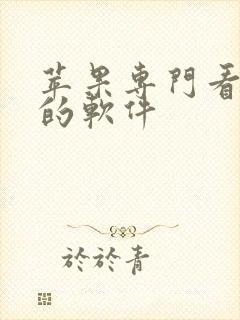 苹果專門看
的軟件
於於青